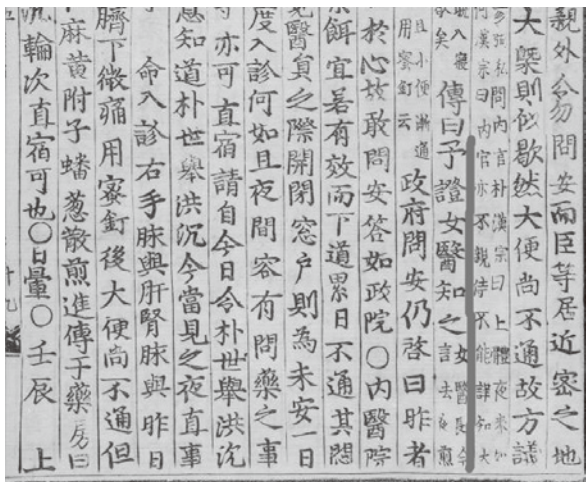 親外令勿問安而臣等居近密之地
大槩則似歇然大便尚不通故方議
私問內言朴漢宗曰上體夜來如
何漢宗曰內官亦不親侍不能詳知大
矣傳曰予證女醫知之女醫長今
言去夜煎
且小便漸通
用蜜釘云政府問安仍啓曰昨者
於心故敢問安答如政院○內醫院
餌宜若有效而下道累日不通其悶
見醫員之際開閉窓戶則為未安一日
度入診何如且夜間容有問藥之事
等亦可直宿請自今日令朴世舉洪沉
意知道朴世舉洪沉今當見之夜直事
命入診右手脉與肝腎脉與昨日
臍下微痛用蜜釘後大便尚不通但
麻黃附子蟠葱散煎進傳于藥房曰
沉輪次直宿可也○日暈○壬辰上
十九